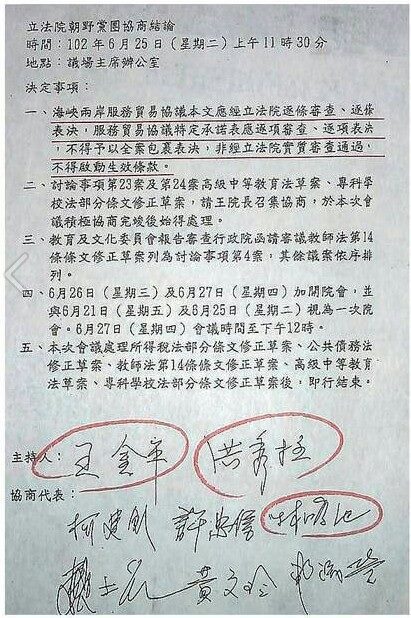 立法院朝野黨團協商結論
時間：102年6月25日（星期二）上午11時30分
地點：議場主席辦公室
決定事項：
一、海峽兩岸服務貿易協議本文應經立法院逐條審查、逐條
表決，服務貿易協議特定承諾表應逐項審查、逐項表決，
不得予以全案包裹表決，非經立法院實質審查通過，
不得啟動生效條款。
二、討論事項第23案及第24案高級中等教育法草案、專科學
校法部分條文修正草案，請王院長召集協商，於本次會
議積極協商完竣後始得處理。
三、教育及文化委員會報告審查行政院函請審議教師法第14
條條文修正草案列為討論事項第4案，其餘議案依序排
列。
四、6月26日（星期三）及6月27日（星期四）加開院會，並
與6月21日（星期五）及6月25日（星期二）視為一次院
會。6月27日（星期四）會議時間至下午12時。
五、本次會議處理所得稅法部分條文修正草案、公共債務法
修正草案、教師法第14條條文修正草案、高級中等教育
法草案、專科學校法部分條文修正草案後，即行結束。
主持人：王金平 洪秀柱
協商代表：
柯建銘 許忠信 林鴻池
黃文玲